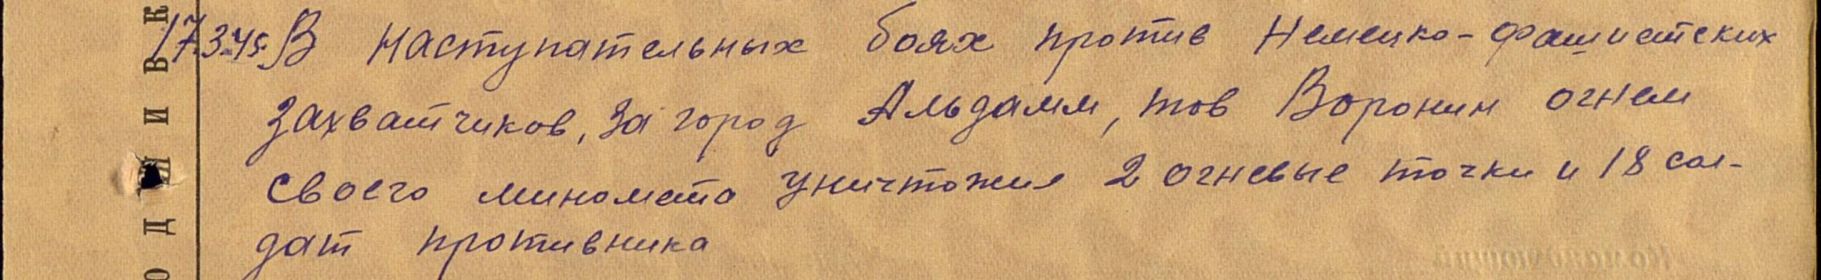 17.3.45г. В наступательных боях против Немецко-фашистских
захватчиков, за город Альдамм, тов Воронин огнем
своего миномета уничтожил 2 огневые точки и 18 сол-
дат противника